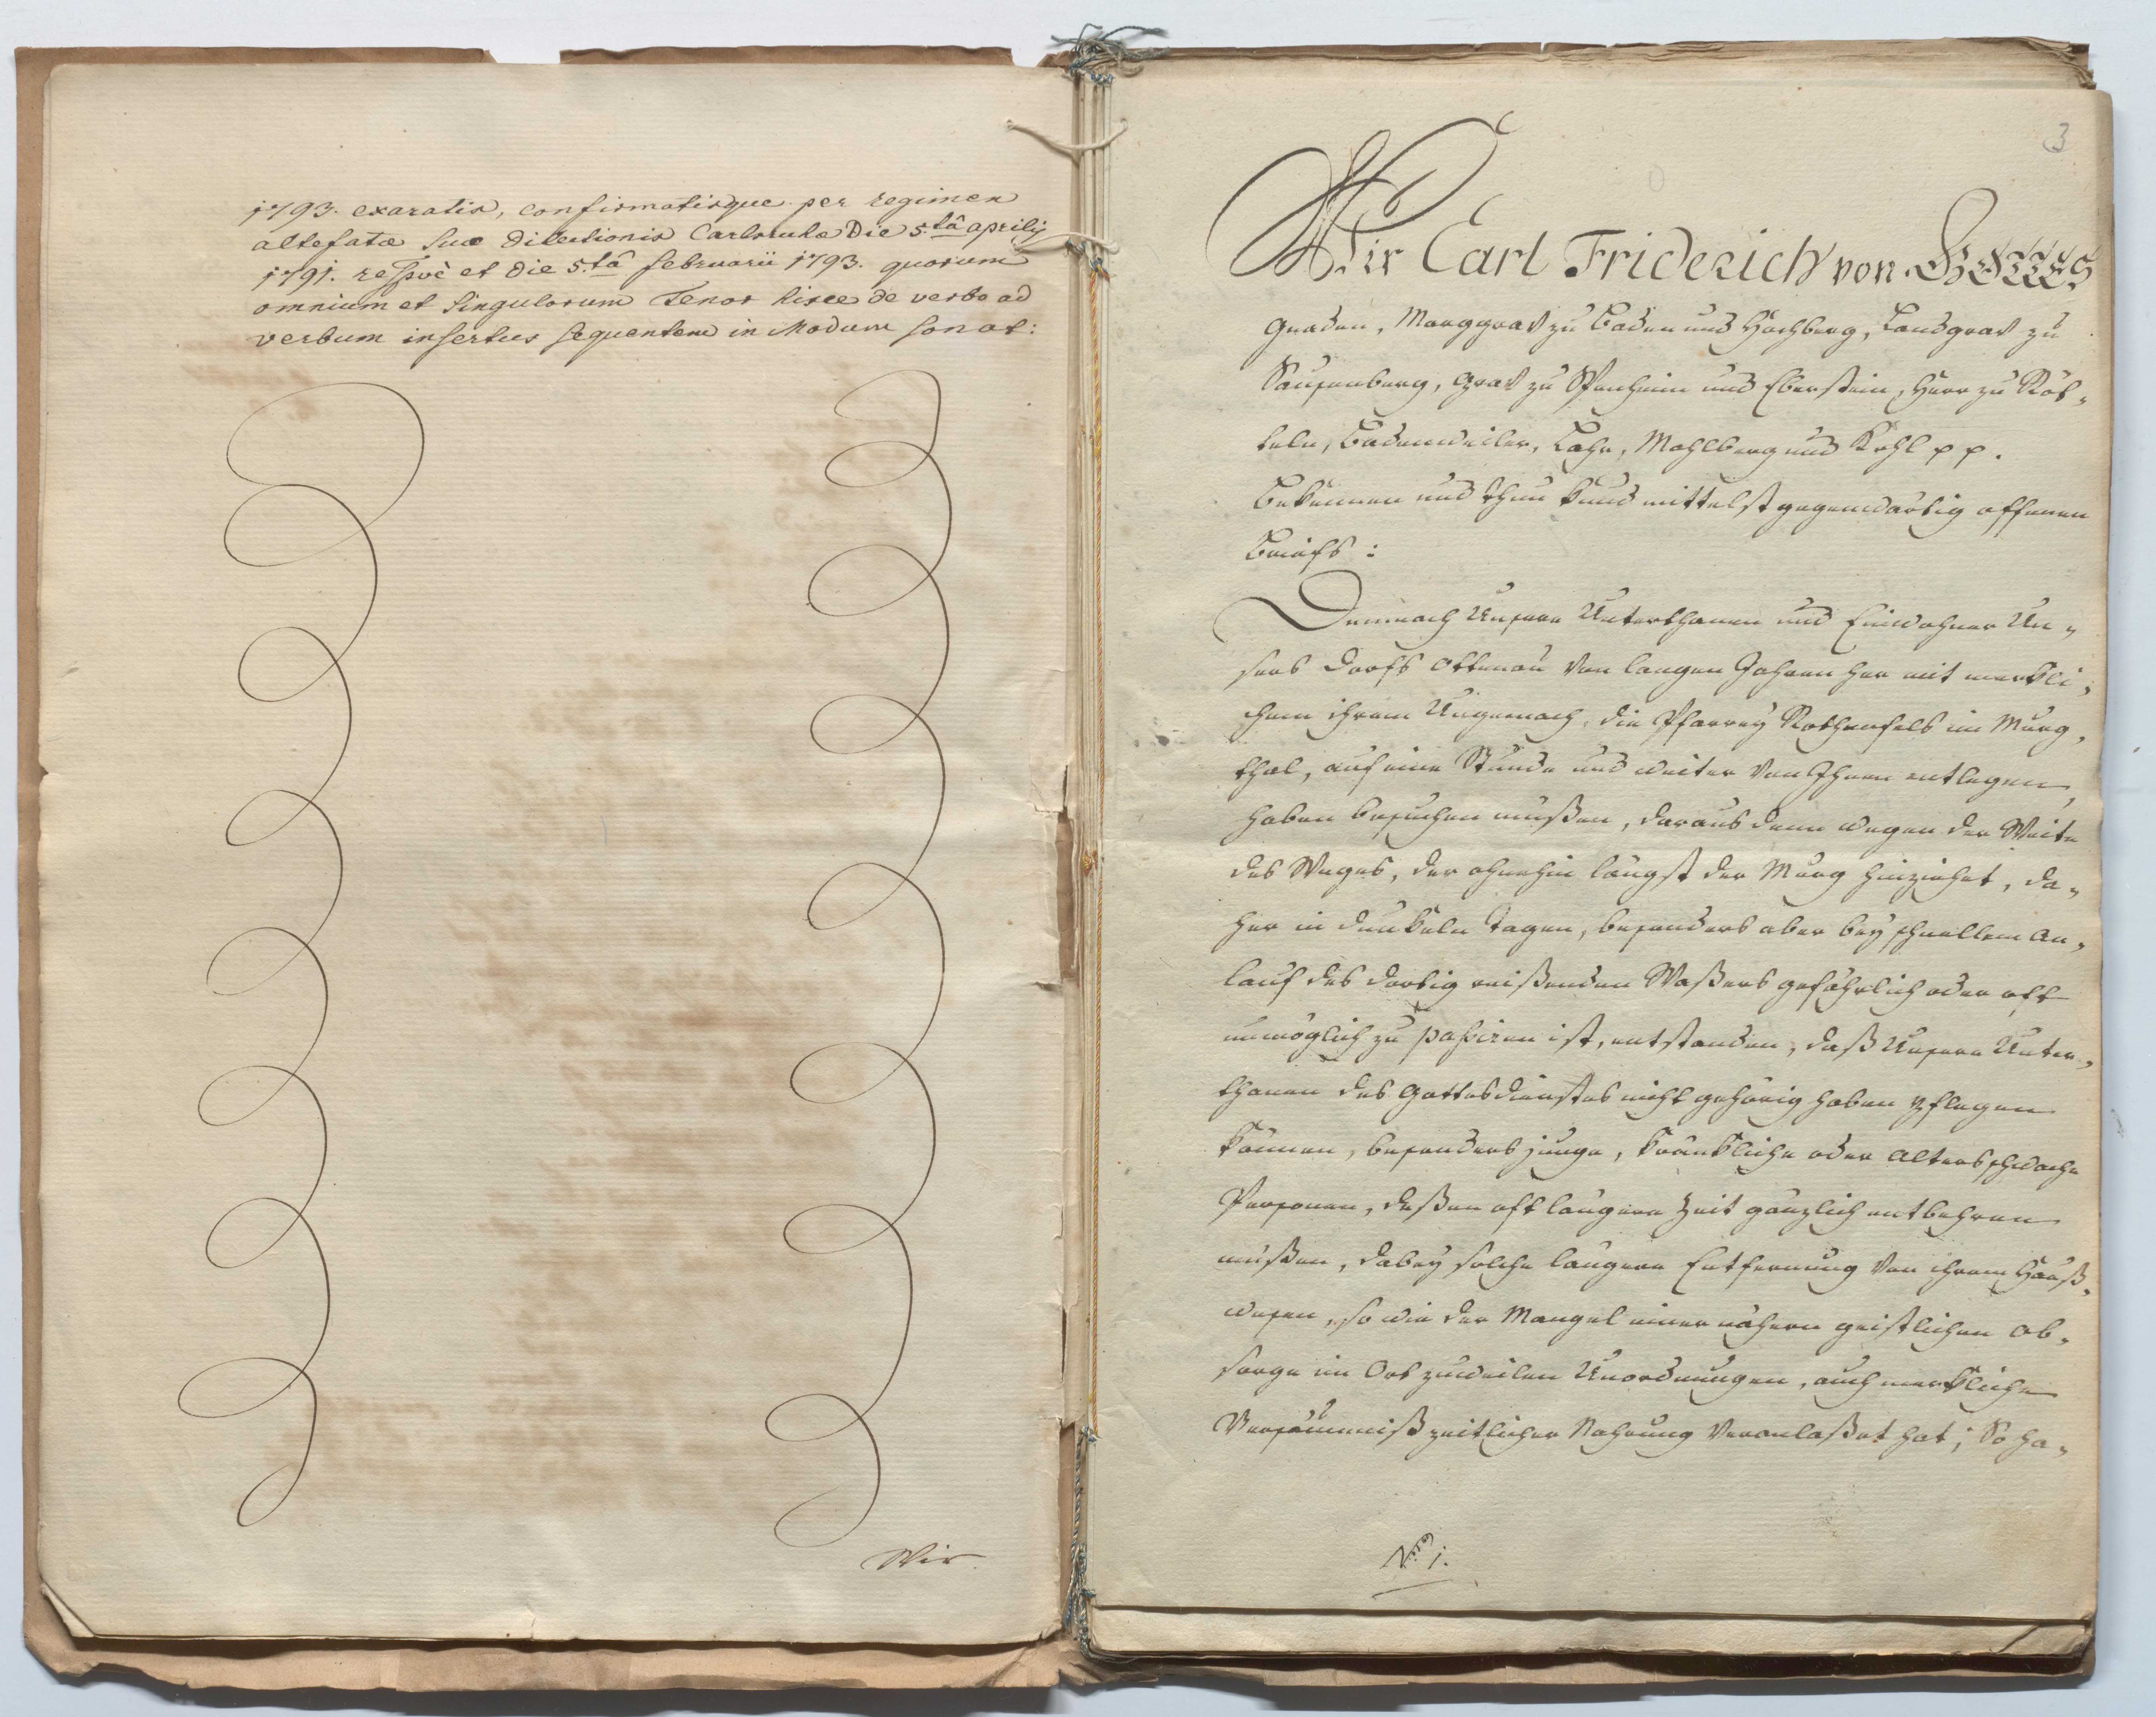 1793. exaratis, confirmatisque per regimen
altefatæ suæ dilectionis Carlsruhæ Die 5.tâ aprilis
1791. respvè et die 5.tâ februarii 1793. quorum
omnium et singulorum Tenor hisce de verbo ad
verbum insertus sequentem in Modum sonat:
Wir
3
Wir Carl Friderich von GOTTES
Gnaden, Marggrav zu Baden und Hochberg, Landgrav zu
Sausenberg, Grav zu Sponheim und Eberstein, Herr zu Röt-
teln, Badenweiler, Lahr, Mahlberg und Kehl p p.
Bekennen und thun kund mittelst gegenwärtig offenen
Briefs:
Demnach Unsere Unterthanen und Einwohner Un-
sers Dorfs Ottenau von langen Jahren her mit merkli-
chem ihrem Ungemach, die Pfarrey Rothenfels im Murg-
thal, auf eine Stunde und weiter von Ihnen entlegen,
haben besuchen müßen, daraus dann wegen der Weite
des Weges, der ohnehin längst der Murg hinziehet, da-
her in dunkeln Tagen, besonders aber bey schnellem An-
lauf des dortig reißenden Waßers gefährlich oder oft
unmöglich zu paßiren ist, entstanden, daß Unsere Unter-
thanen des Gottesdienstes nicht gehörig haben pflegen
können, besonders junge, kränkliche oder Altersschwache
Personen, deßen oft längere Zeit gänzlich entbehren
müßen, dabey solche längere Entfernung von ihrem Hauß-
wesen, so wie der Mangel einer nähern geistlichen Ob-
sorge im Ort zuweilen Unordnungen, auch merkliche
Versäumniß zeitlicher Nahrung veranlaßet hat; So ha-
Nro 1.